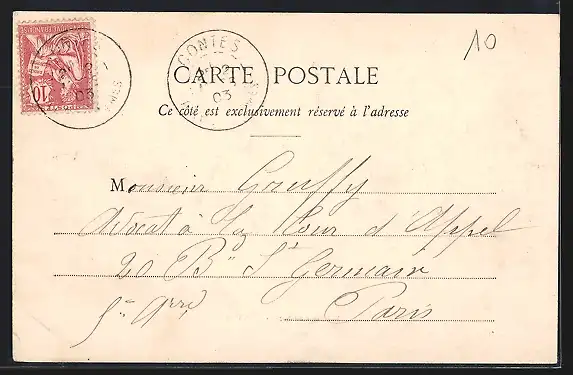 10
CONTES
03
CARTE POSTALE
Ce côté est exclusivement réservé à l'adresse
Monsieur Gruffy
Avocat à la Cour d'Appel
20 Bd St Germain
5e Arrt Paris